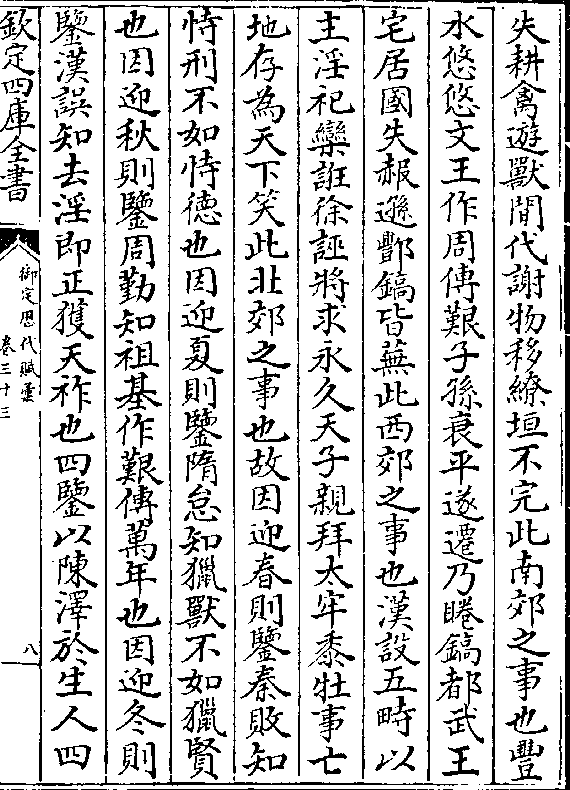 失耕禽遊獸閒代謝物移繚垣不完此南郊之事也豐
水悠悠文王作周傳艱子孫衰平遂遷乃睠鎬都武王
宅居國失赧遜酆鎬皆蕪此西郊之事也漢設五畤以
主淫祀欒誑徐誣將求永久天子親拜太牢黍牡事亡
地存為天下笑此北郊之事也故因迎春則鑒秦敗知
恃刑不如恃德也因迎夏則鑒隋怠知獵獸不如獵賢
也因迎秋則鑒周勤知祖基作艱傳萬年也因迎冬則
鑒漢誤知去淫即正獲天祚也四鑒以陳澤於生人四
欽定四庫全書
御定歷代賦彙
卷三十三
八